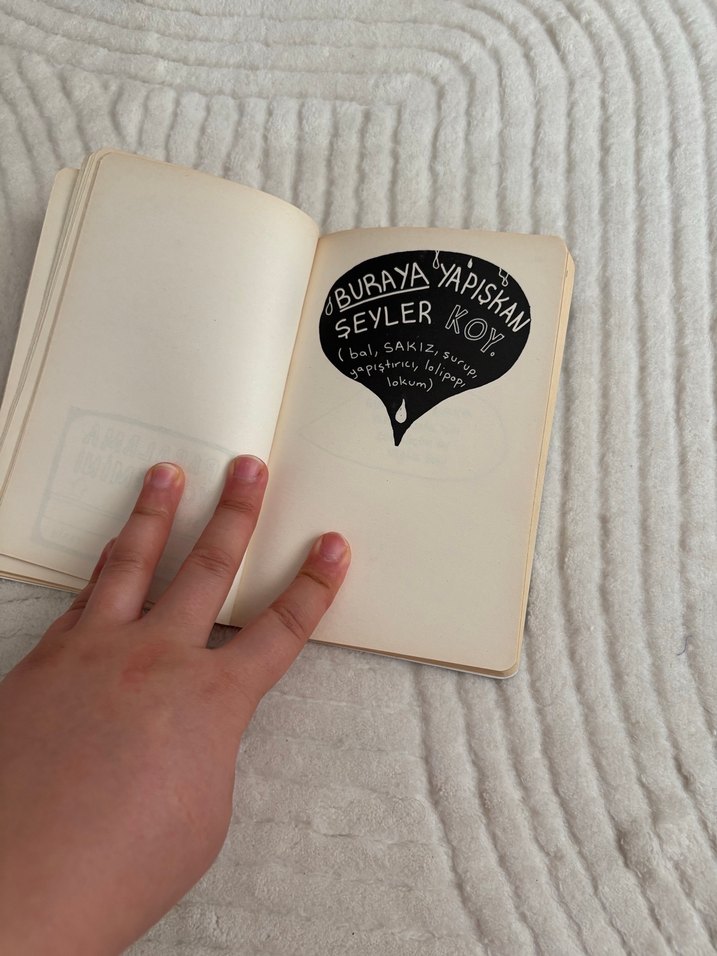 BURAYA YAPIŞKAN
ŞEYLER KOY.
(bal, SAKIZ, şurup,
yapıştırıcı, lolipop,
lokum)